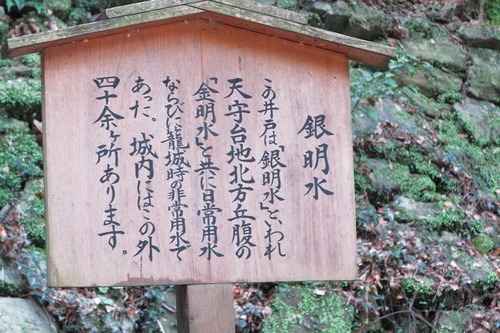 銀明水
この井戸は「銀明水」と、いわれ
天守台地北方丘腹の
「金明水」と共に日常用水
ならびに籠城時の非常用水で
あった。城内にはこの外
四十余ヶ所あります。